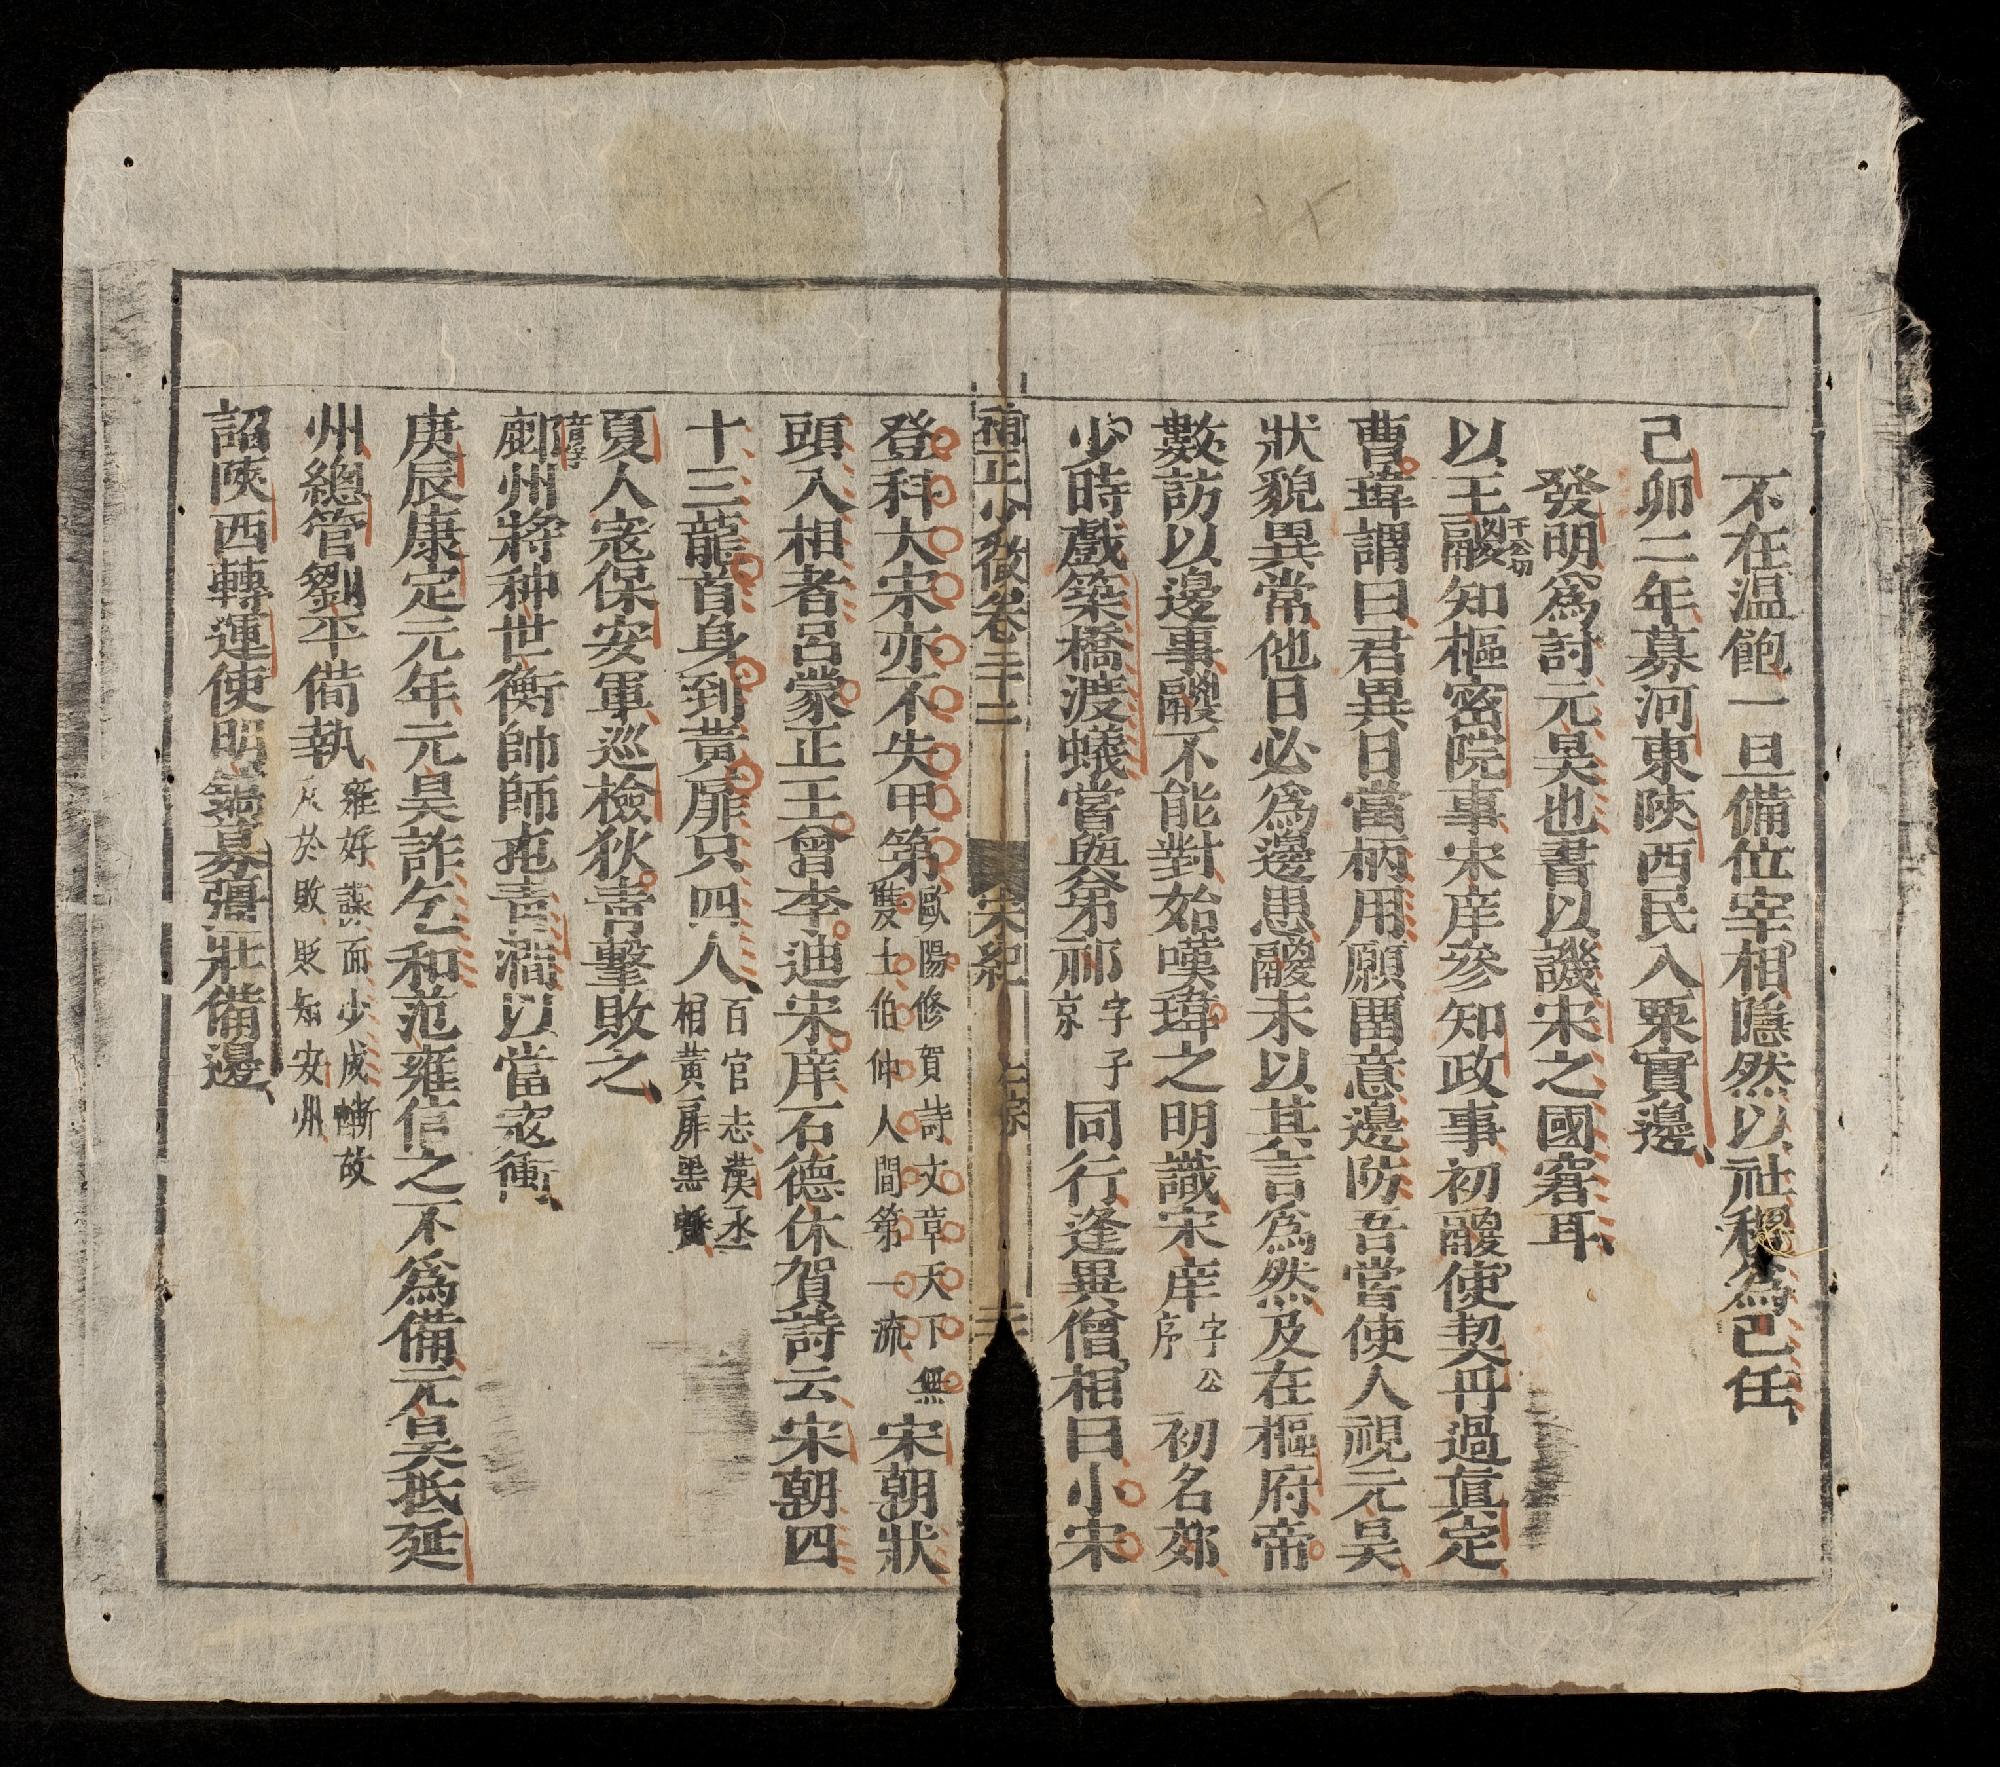 不在温飽一旦備位宰相隱然以社稷為己任
己卯二年募河東陝西民入粟實邊
發明為討元昊也書以譏宋之國窘耳
以王鬷知樞密院事宋庠參知政事初鬷使契丹過真定
曹瑋謂曰君異日當柄用願畱意邊防吾嘗使人視元昊
狀貌異常他日必為邊患鬷未以其言為然及在樞府帝
數訪以邊事鬷不能對始嘆瑋之明識宋庠字公序初名郊
少時戲築橋渡蟻嘗與弟祁字子京同行逢異僧相曰小宋
補正少微卷二十二 宋紀 仁宗 三
登科大宋亦不失甲第歐陽修賀詩文章天下無雙士伯仲人間第一流宋朝狀
頭入相者呂蒙正王曾李迪宋庠石德休賀詩云宋朝四
十三龍首身到黃扉只四人百官志漢丞相黃扉黑轓
夏人寇保安軍巡檢狄青擊敗之
鄜州將种世衡帥師屯青澗以當寇衝
庚辰康定元年元昊詐乞和范雍信之不為備元昊抵延
州總管劉平備執雍好謀而少成慚故及於敗貶知安州
詔陝西轉運使明鎬募彊壯備邊